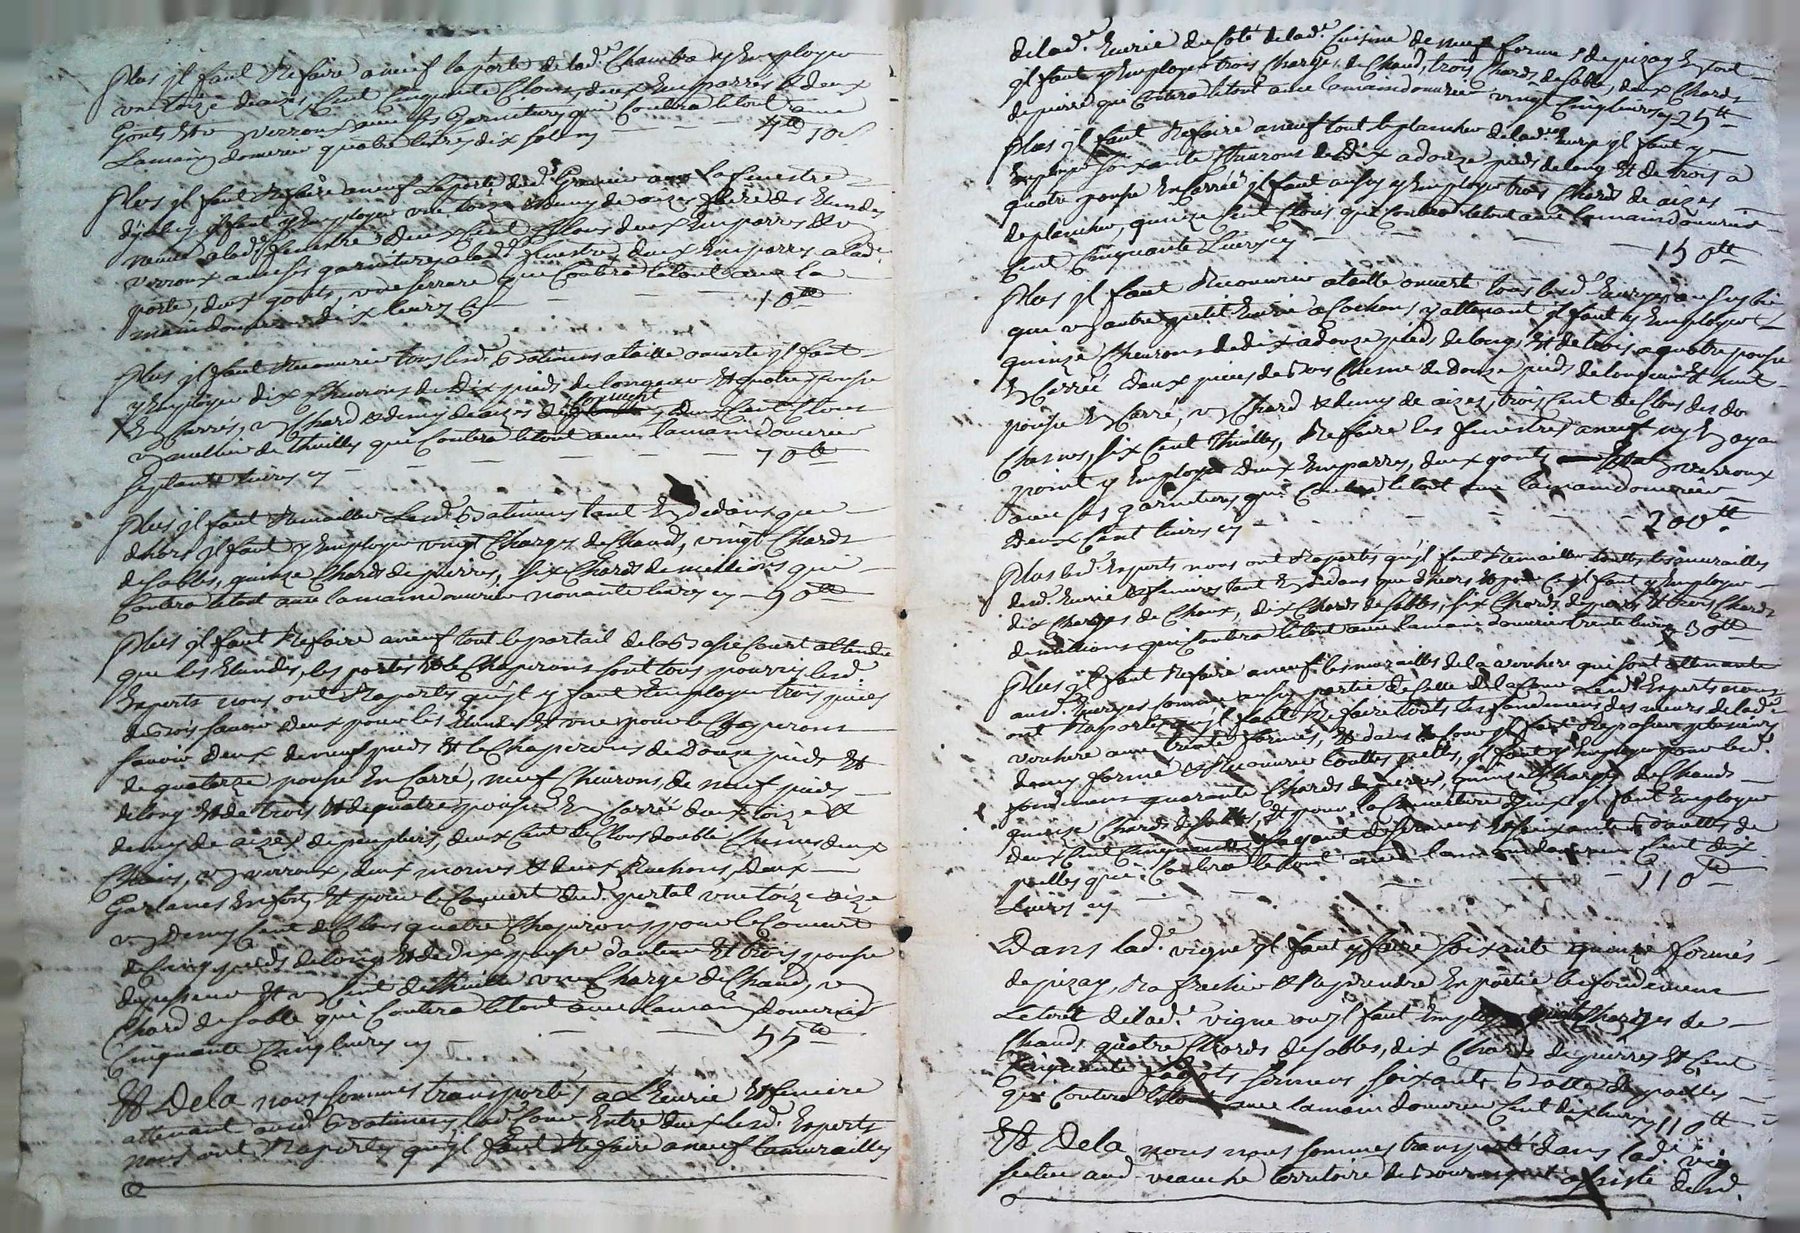 Plus jl faut Refaire aneuf la porte de lad.e Chambre y Employer
une toize d'aizes, Cent Cinquante Clous, deux Emparres & deux
Gonts Et un verroux avec ses Garnitures qui Coutera letout avec
Lamain domerier quatre livres dix sols 4tt 10s
Plus jl faut Refaire aneuf Laporte dud.t Grenier avec La fenestre
jl faut y Employer une toize & demy de aizes faire des Etandes
neuve alad.e fenestre deux Cent Clous deux Emparres & un
verroux avec ses garnitures alad.e fenestre, deux Emparres alad.e
porte, deux gonts, une serrure qui Coutera letout avec la
main domerier dix livres 10tt
Plus jl faut Recouvrir tous lesd.s Batimens ataille ouverte jl faut
y Employer dix Cheurons de dix pieds de longueur Et quatre pouse
En Carrés, un Chard & demy de aizes de deux Cent Clous
un millier de thuilles qui Coutera letout avec lamaindomerier
septante livres 70tt
Plus jl faut Remailler Lesd.s Batimens tant En dedans que
dehors jl faut y Employer vingt Charges de Chaud, vingt Chards
de sables, quinze Chards de pierres, six Chards de mellions qui
Coutera letout avec lamaindomerier nonante livres 90tt
Plus jl faut Refaire aneuf tout le portail de la Basse Court attendu
que les Etandes, les portes & le Chaperons sont tous pourris lesd.s
Experts nous ont Raportés qu'jl y faut Employer trois pieces
de Bois savoir deux pour les Etandes Et une pour le Chaperons
savoir deux de neuf pieds Et le Chaperons de Douze pieds Et
de quatorze pouse En Carré, neuf Cheurons de neuf pieds
de long Et de trois Et de quatre pouse En Carré deux toize Et
demy de aizes de peupliers, deux Cent de Clous double Chesnes deux
Chains, un verroux, deux mornes & deux Ruchons, deux
Garlanes Enfer, Et pour le Couvert dud. portal une toize aize
un Demy Cent de Clous quatre Chaperons pour le Couvert
de Cinq pieds de long Et de dix pouse d'auteur Et trois pouse
depesseur Et un Cent de thuille une Charge de Chaud, un
Chard de sable qui Coutera letout avec lamain domerier
Cinquante Cinq livres 55tt
Et Dela nous sommes transportés a L'Eurie Et feniere
attenant aud. Batimens lad. Cour Entre deux lesd.s Experts
nous ont Raportés qu'jl faut Refaire aneuf lamurailles
delad.e Eurie du Coté delad.e Cuisine de neuf forme de pizay En tout
jl faut y Employer trois Charges de Chaud, trois Chards de sable, deux Chards
de pierre qui Coutera letout avec lamaindomerier vingt Cinq livres 25tt
Plus jl faut Refaire aneuf tout le plancher delad.e Eurie jl faut y
Employer soixante Cheurons de Dix adouze pieds de long Et de trois a
quatre pouse En Carrée jl faut aussy y Employer trois Chards de aizes
de plancher, quinze Cent Clous qui Coutera letout avec lamaindomerier
Cent Cinquante Livres 150tt
Plus jl faut Recouvrir ataille ouverte tous lesd. Euryes aussy bien
que un autre petit Eurie a Cochons y attenant jl faut y Employer
quinze Cheurons de dix adouze pieds de long, Et de trois a quatre pouse
En Carrée deux pieces de Bois Chesne de Douze pieds de longueur Et huit
pouse En Carré, un Chard & demy de aizes, trois Cent de Clous des do
Chaines, six Cent thuilles, Refaire les fenestres aneuf n'y En ayant
point y Employer deux Emparres, deux gonts un verroux
avec ses garnitures qui Coutera letout avec lamaindomerier
deux Cent livres 200tt
Plus lesd. Experts nous ont Raportés qu'jl faut Remailler touttes les murailles
desd. Eurie & feniere tant En dedans que dhors & pour Ce jl faut y Employer
dix Charges de Chaux, dix Chards de sables, six Chards de pierre & trois Chards
de mellions qui Coutera letout avec lamaindomerier trente livres 30tt
Plus jl faut Refaire aneuf les murailles dela vouchere qui sont attenante
aux d. Euryes Comme aussy partie de celle dela Cour Lesd. Experts nous
ont Raportés qu'jl faut Refaire touts les fondemens des meurs delad.e
vouchere avec trente formes, Et dans le four jl faut Repasser plusieurs
demy forme & Recouvrir touttes jcelles, jl faut y Employer pour lesd.
fondemens quarante Chards de pierres, quinze Charges de Chaud
quinze Chards de sables, Et pour la Couverture d'jceux jl faut Employer
deux Cent Cinquante fagots de sermens Et soixante Bottes de
pailles qui Coutera letout avec lamaindomerier Cent dix
Livres 110tt
Dans lad.e vigne jl faut y faire soixante quinze formes
de pizay, Rafrechir & Reprendre En partie les fondemens
Le toit delad.e vigne ou jl faut Employer quatre Charges de
Chaud, quatre Chards de sables, dix Chards de pierres Et Cent
Cinquante fagots sermens soixante Botte de pailles
qui Coutera letout avec lamain domerier Cent dix livres 110tt
Et Dela nous nous sommes transporté dans lad.e vigne
scituée aud. veauche territoire de assisté desd.